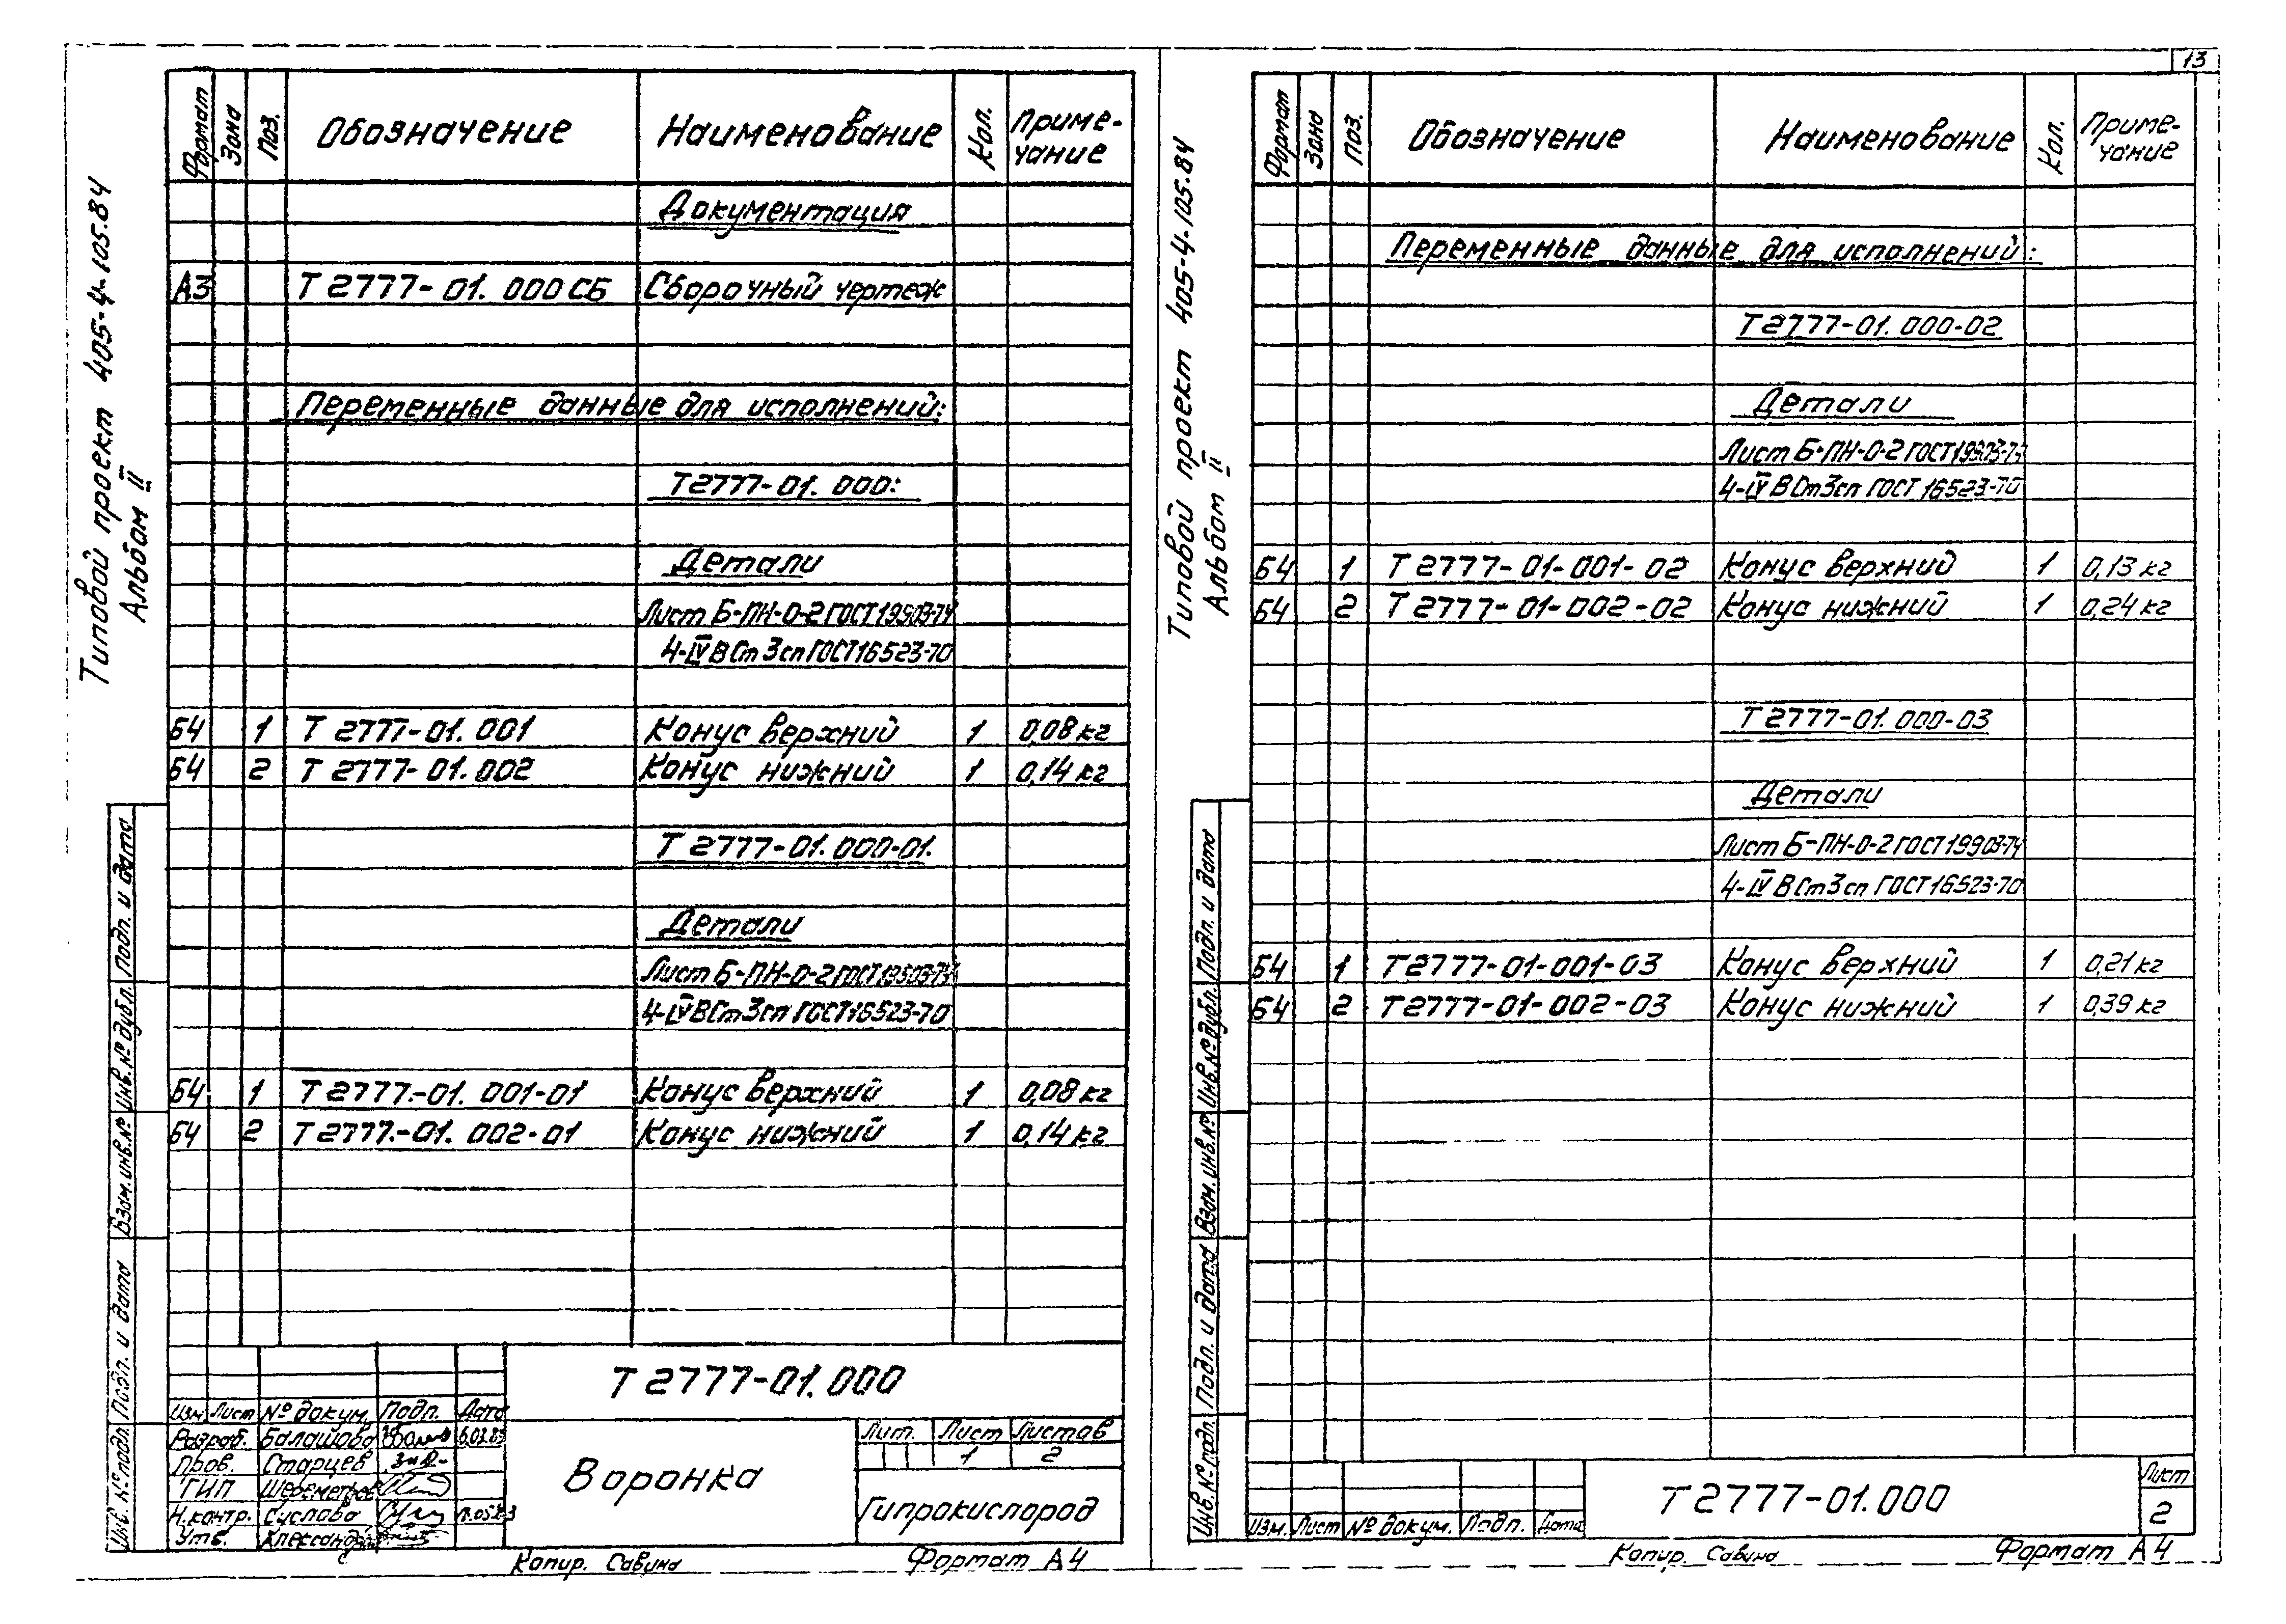 Типовой проект 405-4-105.84
Альбом II
Формат Зона Поз. Обозначение Наименование Кол. Приме-чание
Документация
А3 Т 2777-01.000 СБ Сборочный чертеж
Переменные данные для исполнений:
Т 2777-01.000:
Детали
Лист Б-ПН-О-2 ГОСТ 19903-74
4-IV ВСт3сп ГОСТ 16523-70
Б4 1 Т 2777-01.001 Конус верхний 1 0,08 кг
Б4 2 Т 2777-01.002 Конус нижний 1 0,14 кг
Т 2777-01.000-01.
Детали
Лист Б-ПН-О-2 ГОСТ 19903-74
4-IV ВСт3сп ГОСТ 16523-70
Б4 1 Т 2777-01.001-01 Конус верхний 1 0,08 кг
Б4 2 Т 2777-01.002-01 Конус нижний 1 0,14 кг
Инв. № подл. Подп. и дата Взам. инв. № Инв. № дубл. Подп. и дата
Т 2777-01.000
Изм. Лист № докум. Подп. Дата
Разраб. Балашова
Пров. Старцев
ГИП Шереметьев
Н.контр. Суслова
Утв.
Воронка
Лит. Лист Листов
1 2
Гипрокислород
Копир. Савина Формат А4
13
Типовой проект 405-4-105.84
Альбом II
Формат Зона Поз. Обозначение Наименование Кол. Приме-чание
Переменные данные для исполнений:
Т 2777-01.000-02
Детали
Лист Б-ПН-О-2 ГОСТ 19903-74
4-IV ВСт3сп ГОСТ 16523-70
Б4 1 Т 2777-01-001-02 Конус верхний 1 0,13 кг
Б4 2 Т 2777-01-002-02 Конус нижний 1 0,24 кг
Т 2777-01.000-03
Детали
Лист Б-ПН-О-2 ГОСТ 19903-74
4-IV ВСт3сп ГОСТ 16523-70
Б4 1 Т 2777-01-001-03 Конус верхний 1 0,21 кг
Б4 2 Т 2777-01-002-03 Конус нижний 1 0,39 кг
Инв. № подл. Подп. и дата Взам. инв. № Инв. № дубл. Подп. и дата
Изм. Лист № докум. Подп. Дата
Т 2777-01.000
Лист
2
Копир. Савина Формат А4